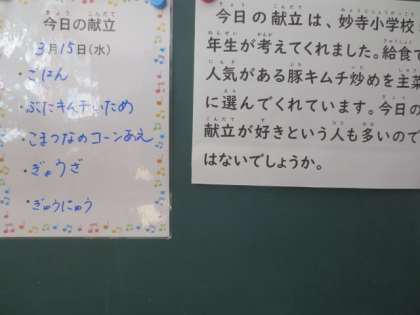 今日の献立
3月15日(水)
・ごはん
・ぶたキムチいため
・こまつなのコーンあえ
・ぎょうざ
・ぎゅうにゅう
今日の献立は、妙寺小学校
年生が考えてくれました。給食で
人気がある豚キムチ炒めを主菜
に選んでくれています。今日の
献立が好きという人も多いので
はないでしょうか。